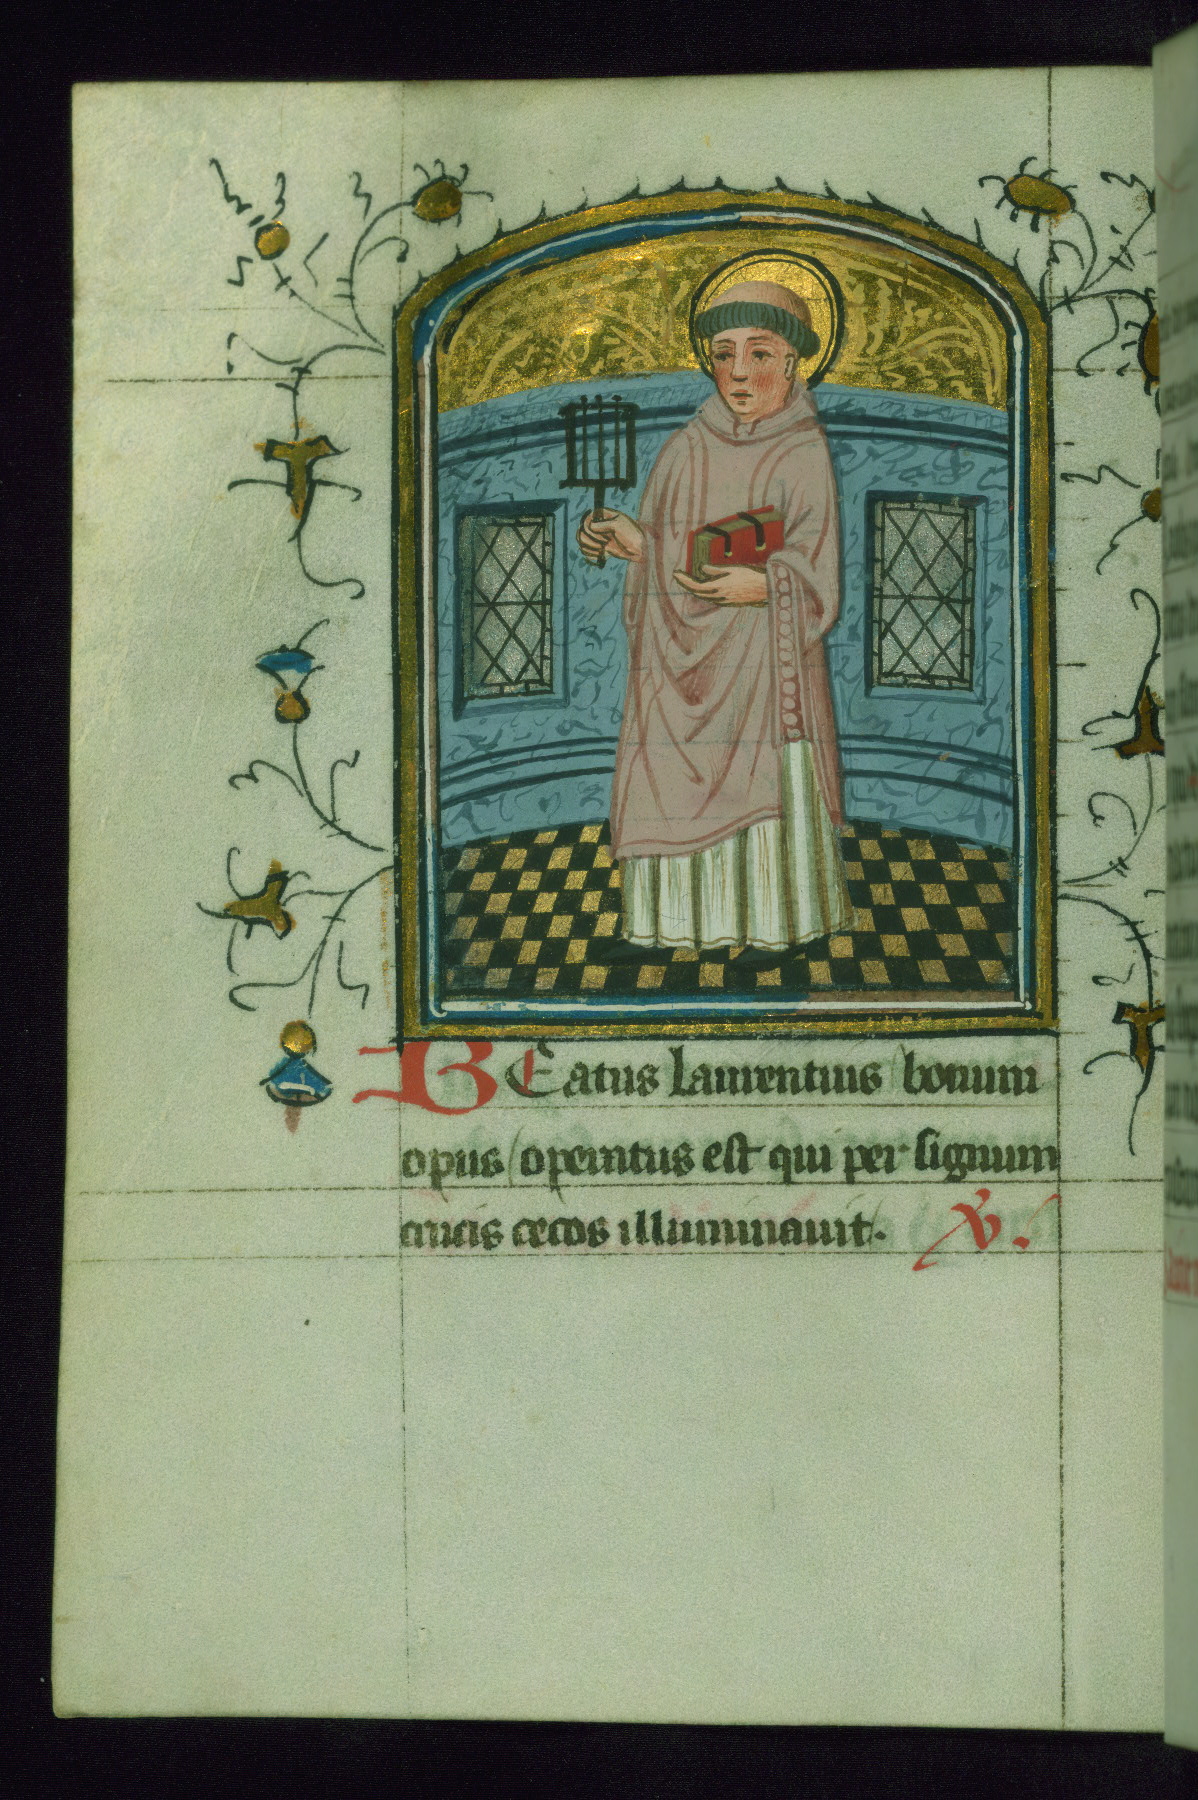 BEatus laurentius bonum
opus operatus est qui per signum
crucis cecos illuminauit. V.